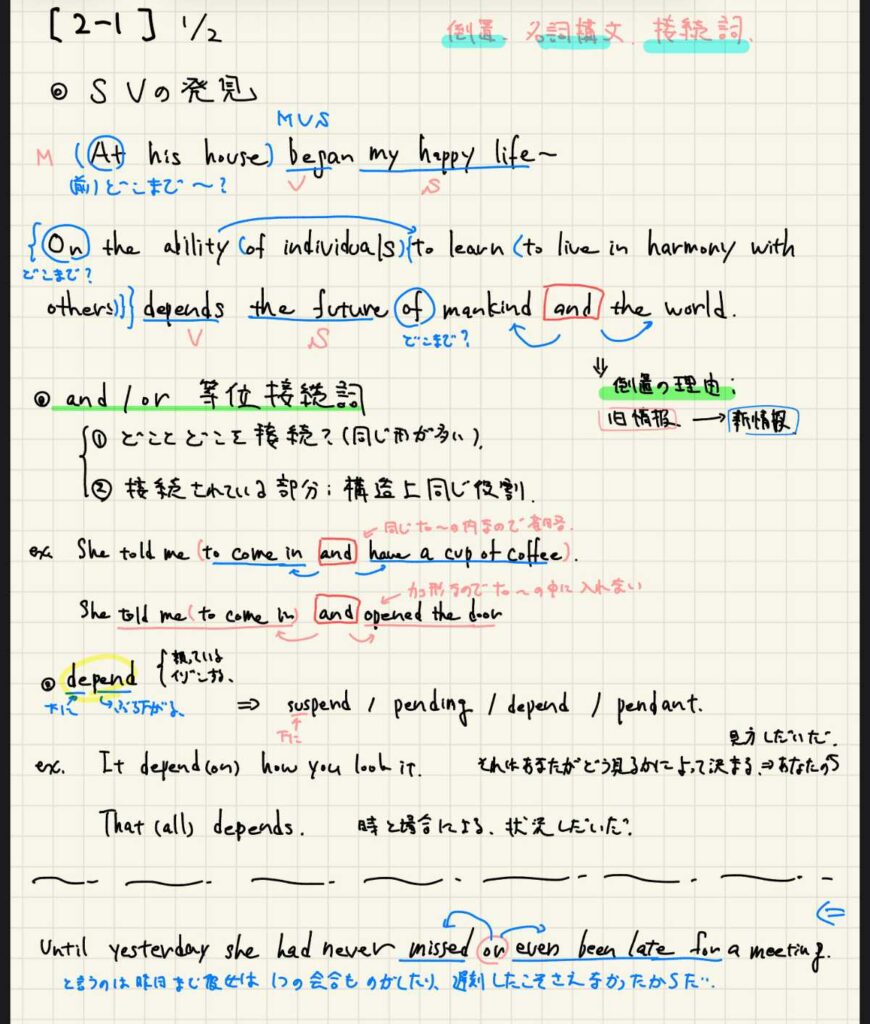 [2-1] 1/2
倒置、名詞構文、接続詞.
◎ SVの発見
MVS
M (At his house) began my happy life~
(前)どこまで~? V S
{On the ability (of individuals){to learn (to live in harmony with
どこまで?
others)}} depends the future of mankind and the world.
V S どこまで?
⇓
倒置の理由;
旧情報 → 新情報
◎ and/or 等位接続詞
① どことどこを接続?(同じ形が多い).
② 接続されている部分;構造上同じ役割.
同じto~の内なので省略.
ex. She told me (to come in and have a cup of coffee).
カコ形なのでto~の中に入れない
She told me (to come in) and opened the door
◎ depend { 頼っている
イゾンする.
下に ぶら下がる. ⇒ suspend / pending / depend / pendant.
下に
見方しだいだ.
ex. It depend(on) how you look it. それはあなたがどう見るかによって決まる.⇒あなたの
That (all) depends. 時と場合による、状況しだいだ.
⇐
Until yesterday she had never missed or even been late for a meeting.
と言うのは昨日まで彼女は1つの会合ものがしたり、遅刻したこそさえなかったからだ…